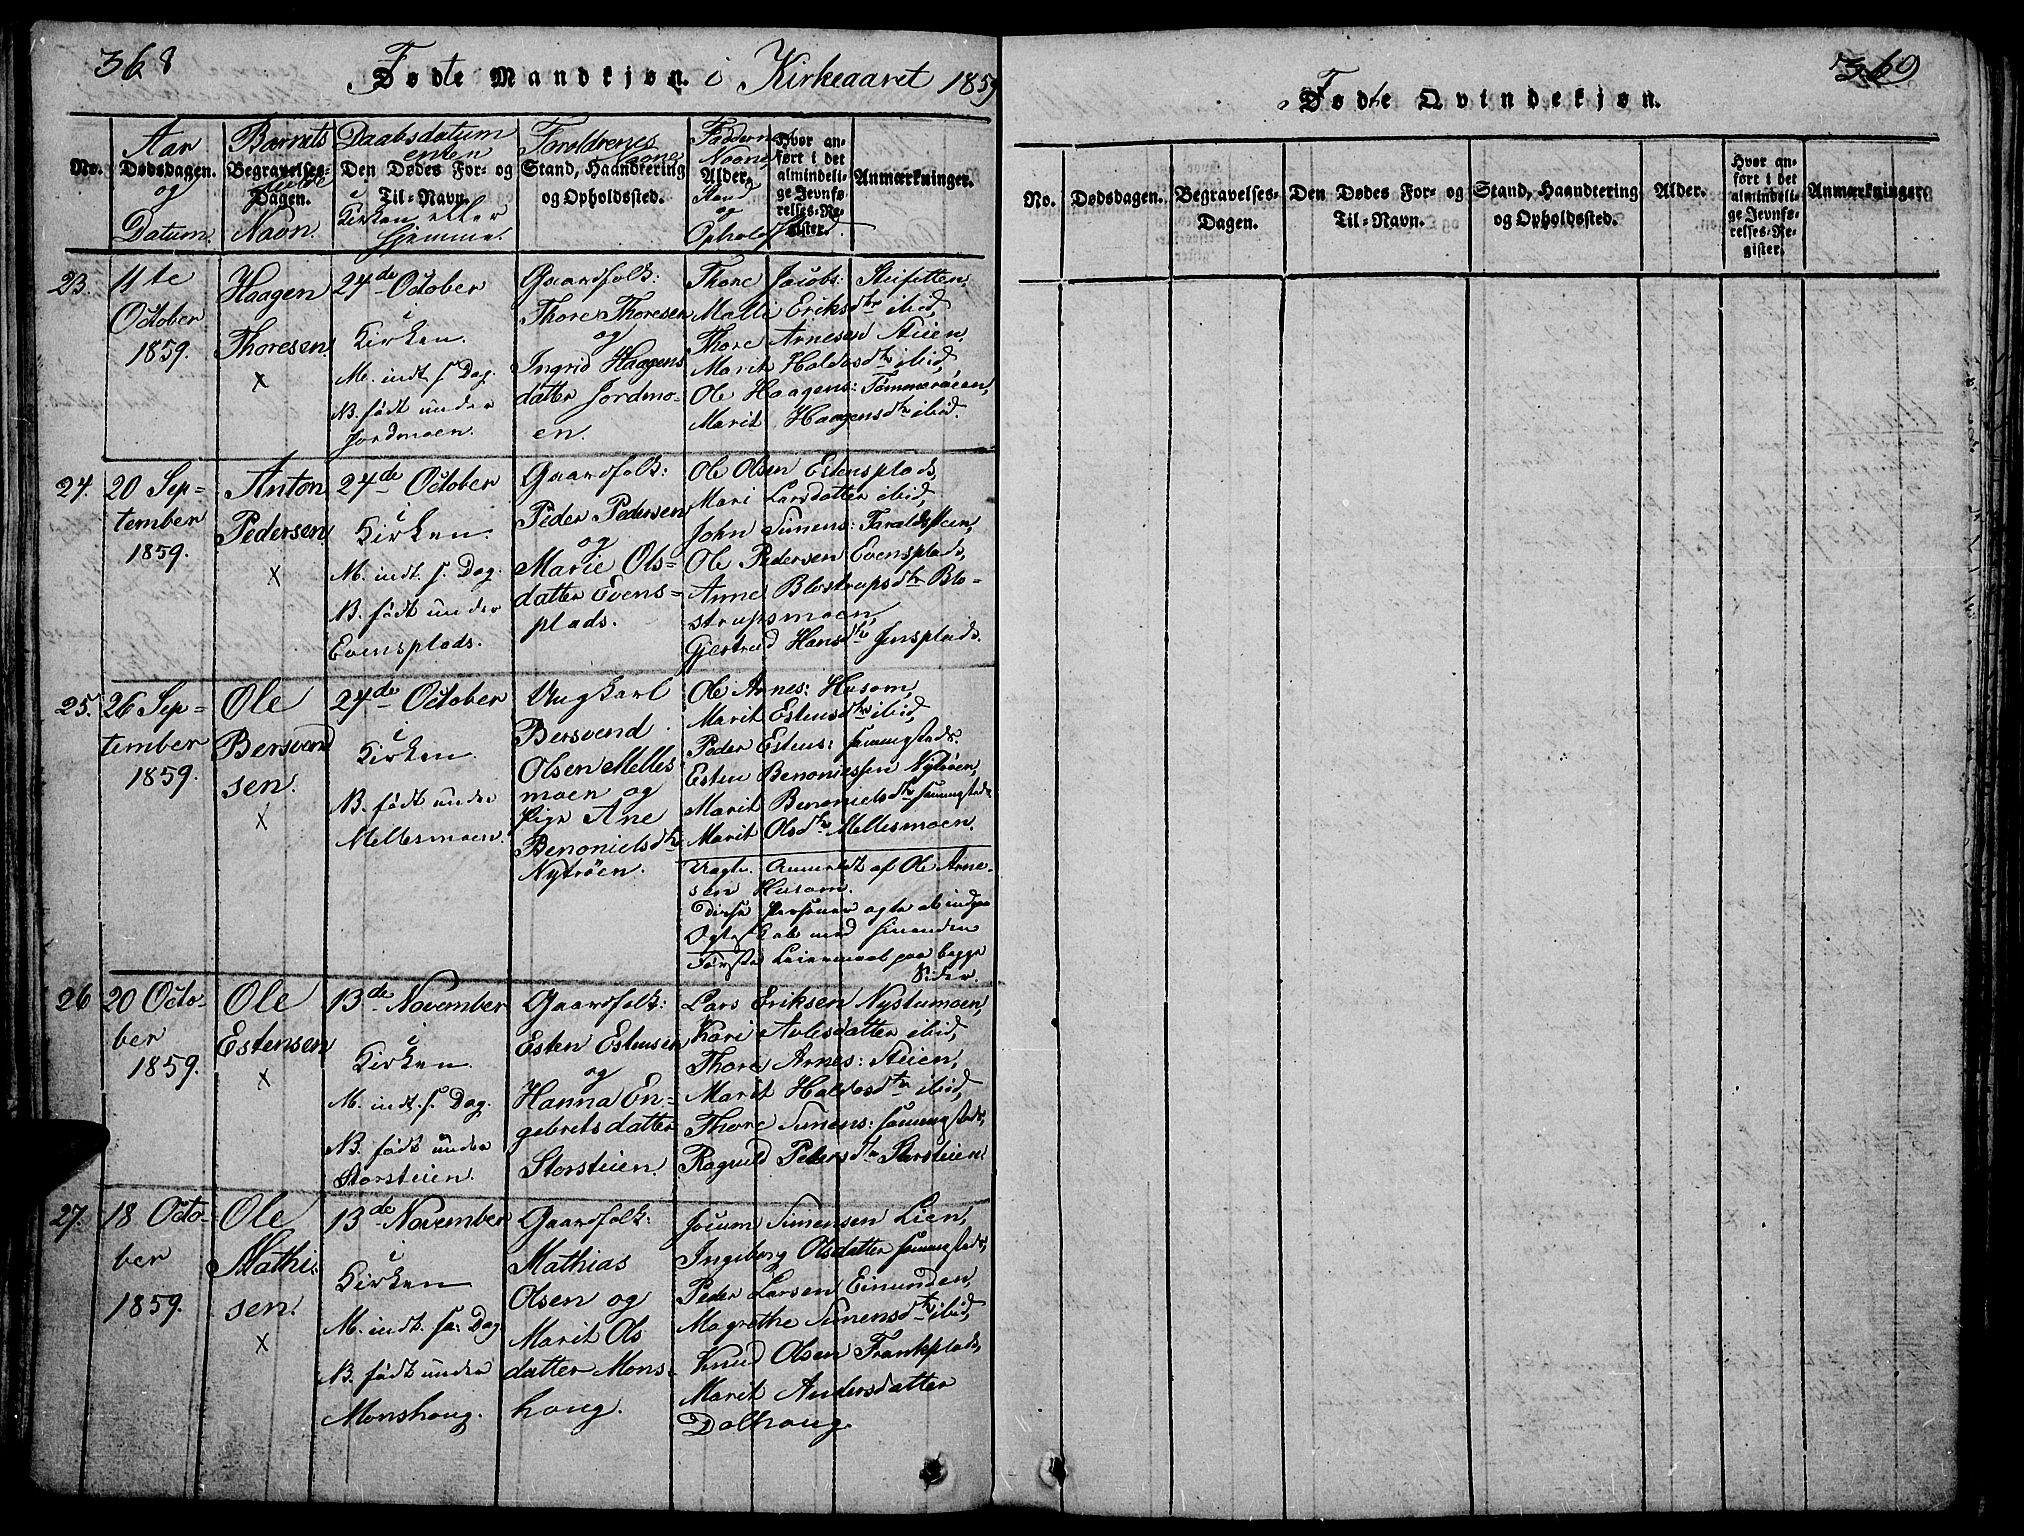 368
Fødte Mandkjøn i Kirkeaaret 1859
No.
Aar
Dødsdagen.
og
Datum.
Barnets
Begravelses-
Dagen.
Navn.
Daabsdatum
enten
Den Dødes For- og
i
Til-Navn.
Kirken eller
hjemme.
Foreldrenes
Navne
Stand, Haandtering
og Opholdssted.
Faddernes
Navne
Alder.
Stand
og
Ophold
Hvor an-
ført i det
almindeli-
ge Jevnfø-
relses-Re-
gister.
Anmærkninger.
23.
11te
October
1859.
Haagen
Thoresen.
x
24de October
i
Kirken.
M. indt. s. Dag.
N. født under
Jordmoen.
Gaardfolk:
Thore Thoresen
og
Ingrid Haagens
datter Jordmo-
en.
Thore Jacobs: Steifetten,
Malli Eriksdtr ibid,
Thore Arnesen Steien,
Marit Haldosdtr ibid,
Ole Haagens: Tømmerøien,
Marit Haagensdtr ibid.
24.
20 Sep-
tember
1859.
Anton
Pedersen.
x
24de October
i
Kirken.
M. indt. s. Dag.
N. født under
Evensplads.
Gaardfolk:
Peder Pedersen
og
Marie Ols-
datter Evens-
plads.
Ole Olsen Estensplads,
Mari Larsdatter ibid,
John Simens: Taraldsteen,
Ole Pedersen Evensplads,
Anne Blostrupsdtr Blo-
strupsmoen,
Gjertrud Hansdtr Jensplads.
25.
26 Sep-
tember
1859.
Ole
Bersven
sen.
x
24de October
i
Kirken.
N. født under
Mellesmoen.
Ungkarl
Bersvend
Olsen Melles
moen og
Pige Ane
Benonielsdtr
Nytrøen.
Ole Arnes: Husom,
Marit Estensdtr ibid,
Peder Estens: sammesteds.
Esten Benonielssen Nytrøen,
Marit Benonielsdtr sammesteds
Marit Olsdtr Mellesmoen.
Uægte. Anmeldt af Ole Arne-
sen Husom.
Disse Personer agte at indgaa
Ægteskab med hinanden
Første Leiermaal paa begge
Sider.
26
20 Octo-
ber
1859.
Ole
Estensen
x
13de November
i
Kirken.
M. indt. s. Dag.
N. født under
Storsteien.
Gaardfolk:
Esten Estensen
og
Hanna En-
gebretsdatter
Storsteien.
Lars Eriksen Nystumoen,
Kari Avlesdatter ibid,
Thore Arnes: Steien,
Marit Haldosdtr ibid,
Thore Simens: sammesteds,
Ragnild Pedersdtr Storsteien.
27.
18 Octo-
ber
1859.
Ole
Mathi-
sen.
x
13de November
i
Kirken
M. indt. sa. Dag
N. født under
Monshoug.
Gaardfolk:
Mathias
Olsen og
Marit Ols
datter Mons-
houg.
Jocum Simensen Lien,
Ingeborg Olsdatter sammesteds,
Peder Larsen Einunden,
Magrethe Simensdtr ibid,
Knud Olsen Frankplads,
Marit Andersdatter
Dalhoug.
369
Fødte Qvindekjøn.
No.
Dødsdagen.
Begravelses-
Dagen.
Den Dødes For- og
Til-Navn.
Stand, Haandtering
og Opholdssted.
Alder.
Hvor an-
ført i det
almindeli-
ge Jevnfø-
relses-Re-
gister.
Anmærkninger.